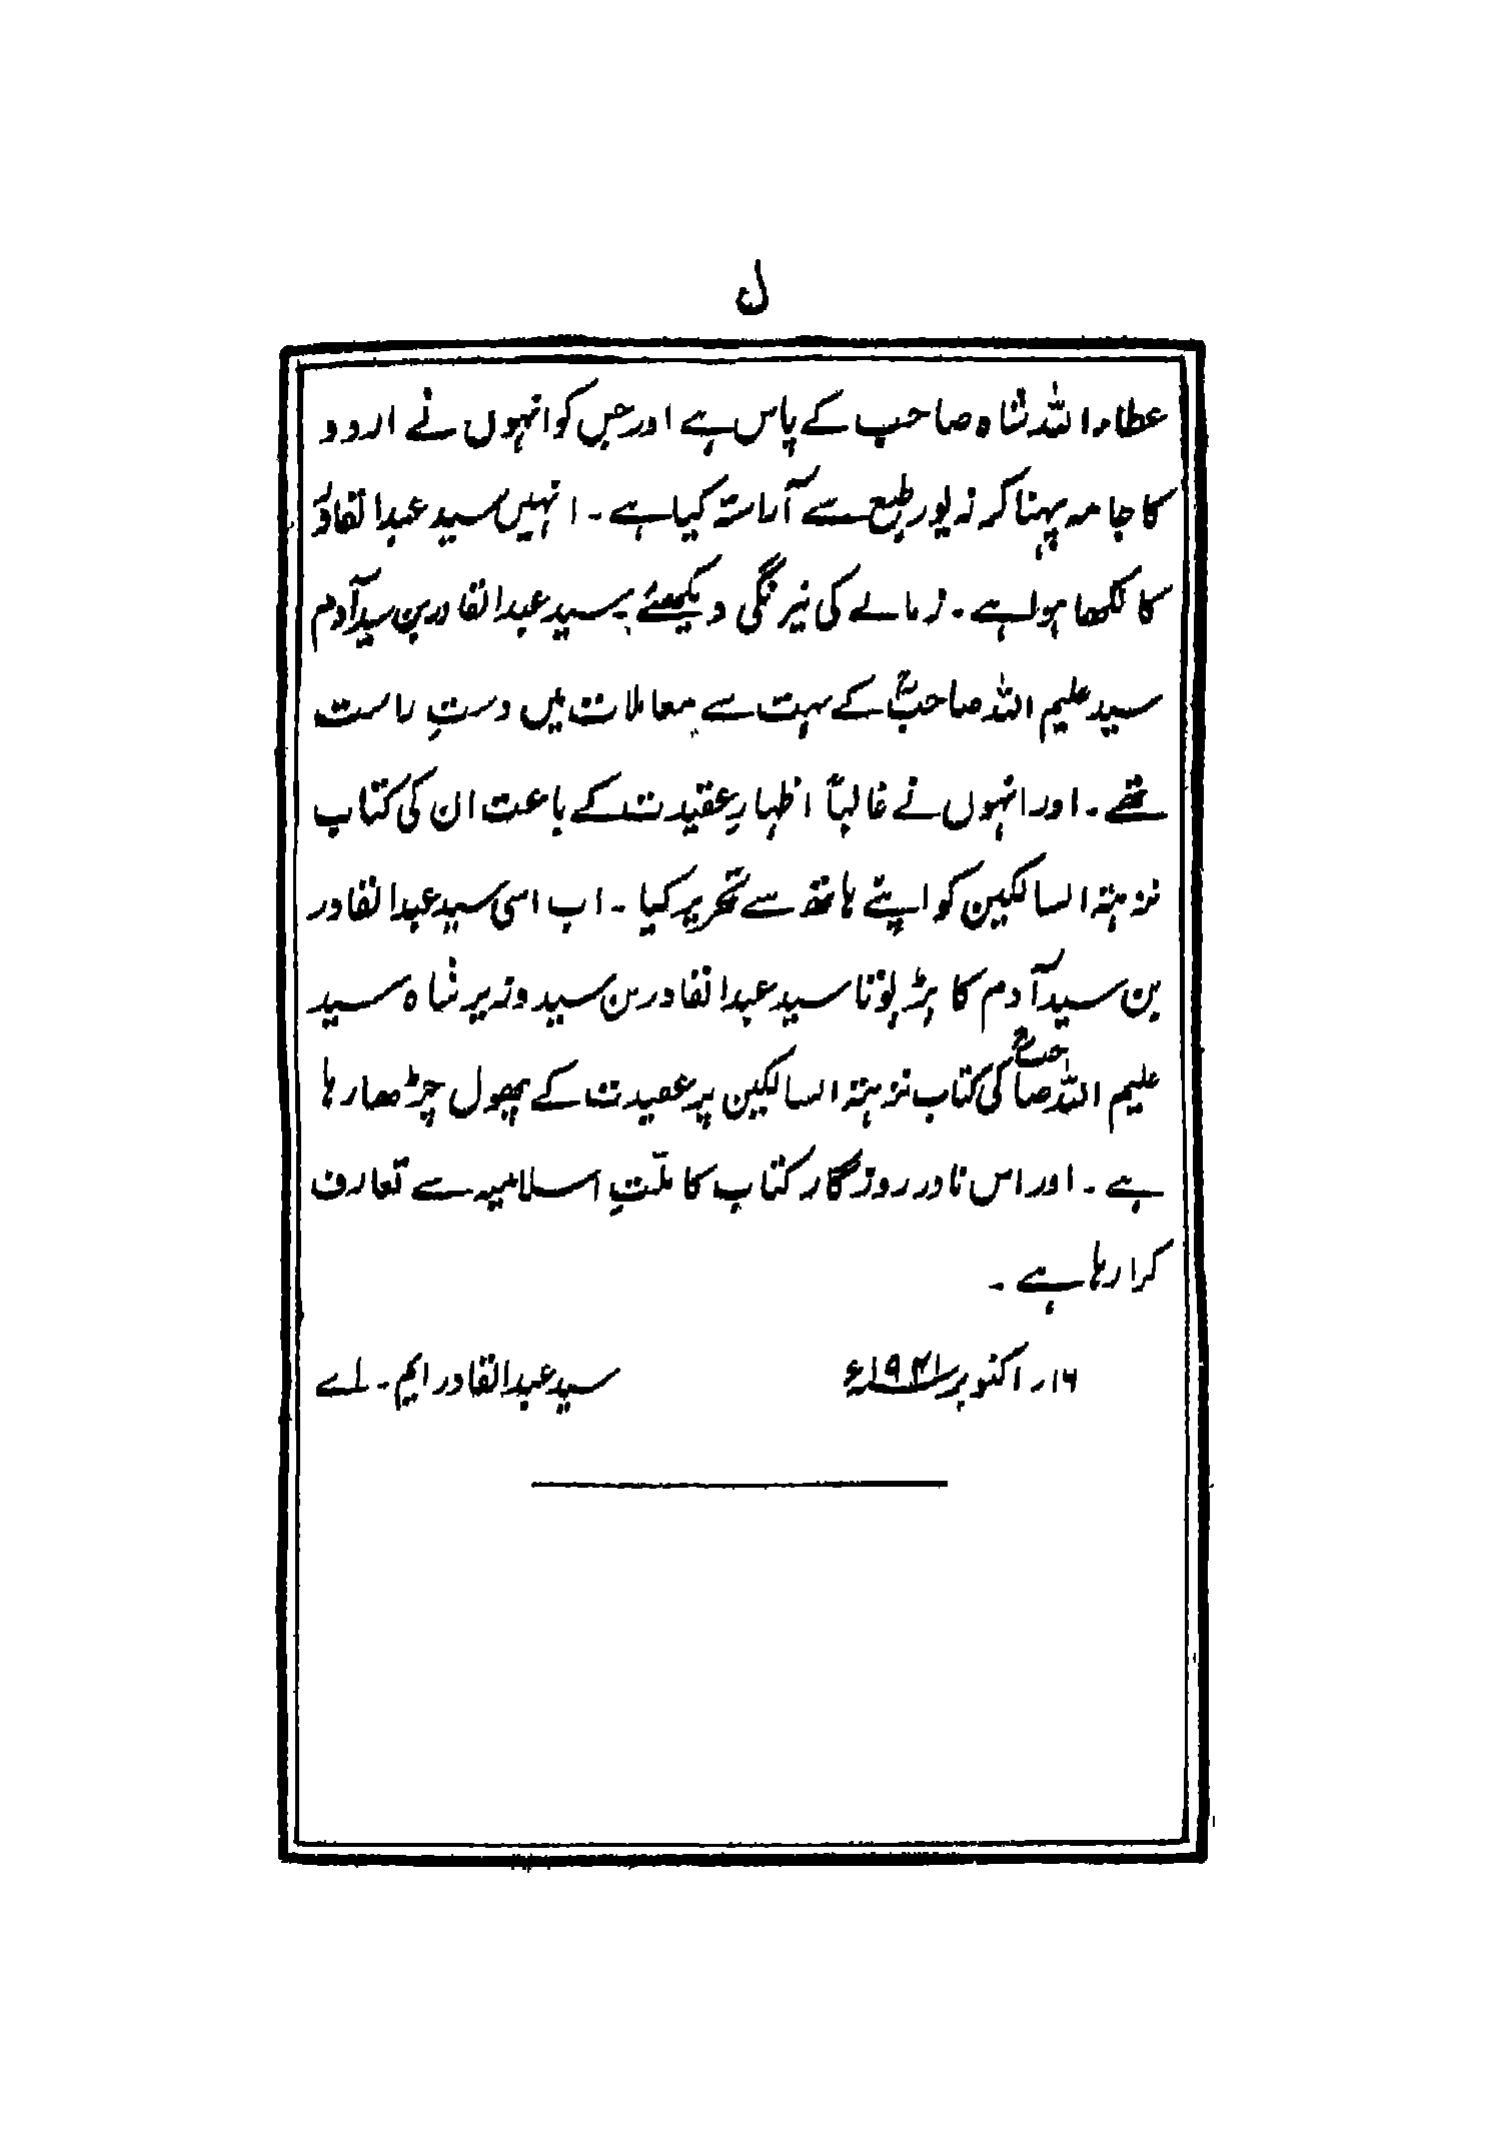 ل
عطاء اللہ شاہ صاحب کے پاس ہے اور جس کو انہوں نے اردو
کا جامہ پہنا کر زیور طبع سے آراستہ کیا ہے۔ انہیں سید عبدالقادرؒ
کا لکھا ہوا ہے۔ زمانے کی نیرنگی دیکھئے سید عبدالقادر بن سید آدم
سید علیم اللہ صاحبؒ کے بہت سے معاملات میں دستِ راست
تھے۔ اور انہوں نے غالباً اظہارِ عقیدت کے باعث ان کی کتاب
نزہتہ السالکین کو اپنے ہاتھ سے تحریر کیا۔ اب اسی سید عبدالقادر
بن سید آدم کا پڑپوتا سید عبدالقادر بن سید وزیر شاہ سید
علیم اللہ صاحبؒ کی کتاب نزہتہ السالکین پر عقیدت کے پھول چڑھا رہا
ہے۔ اور اس نادر روزگار کتاب کا ملّتِ اسلامیہ سے تعارف
کرا رہا ہے۔
۱۶ر اکتوبر ؁ء سید عبدالقادر ایم۔ اے